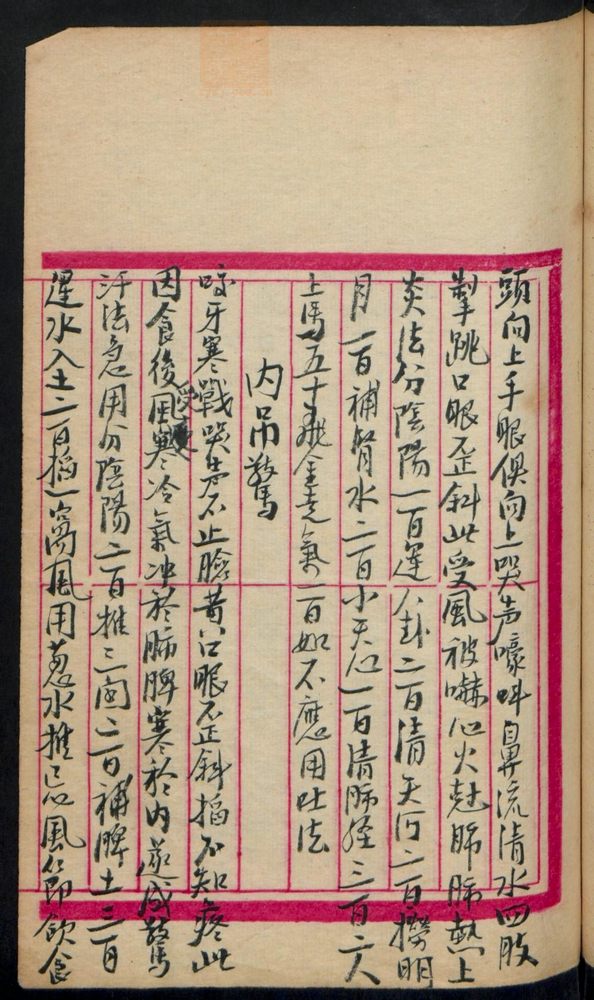 頭向上手眼俱向上哭声嚎呌鼻流清水四肢
掣跳口眼歪斜此受風被嚇心火尅肺肺熱上
炎法分陰陽一百運八卦二百清天河二百撈明
月一百補腎水二百小天心一百清肺經三百二人
上馬五十飛金走氣一百如不應用吐法
内吊驚
咬牙寒戰哭声不止臉黄口眼歪斜掐不知疼此
因食後受風寒冷氣冲於肺脾寒於内遂成驚
汗法急用分陰陽二百推三関二百補脾土三百
運水入土二百掐一窩風用葱水推忌風節飲食